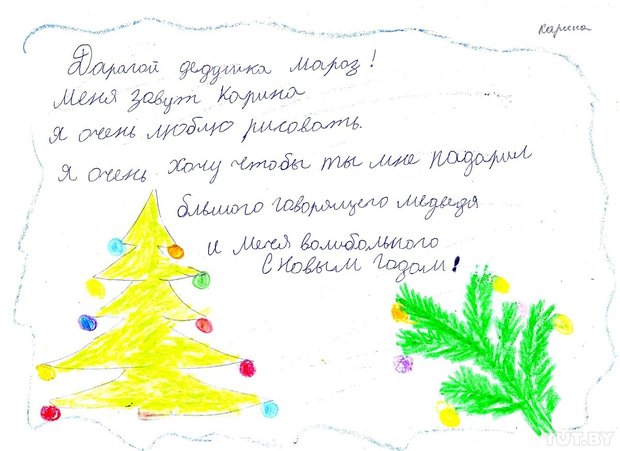 Карина
Дарагой дедушка мароз!
меня завут Карина
я очень люблю рисовать.
я очень хочу чтобы ты мне падарил
блшого говорящего медведя
и мечея волибольного
С новым годом!
TUT.BY